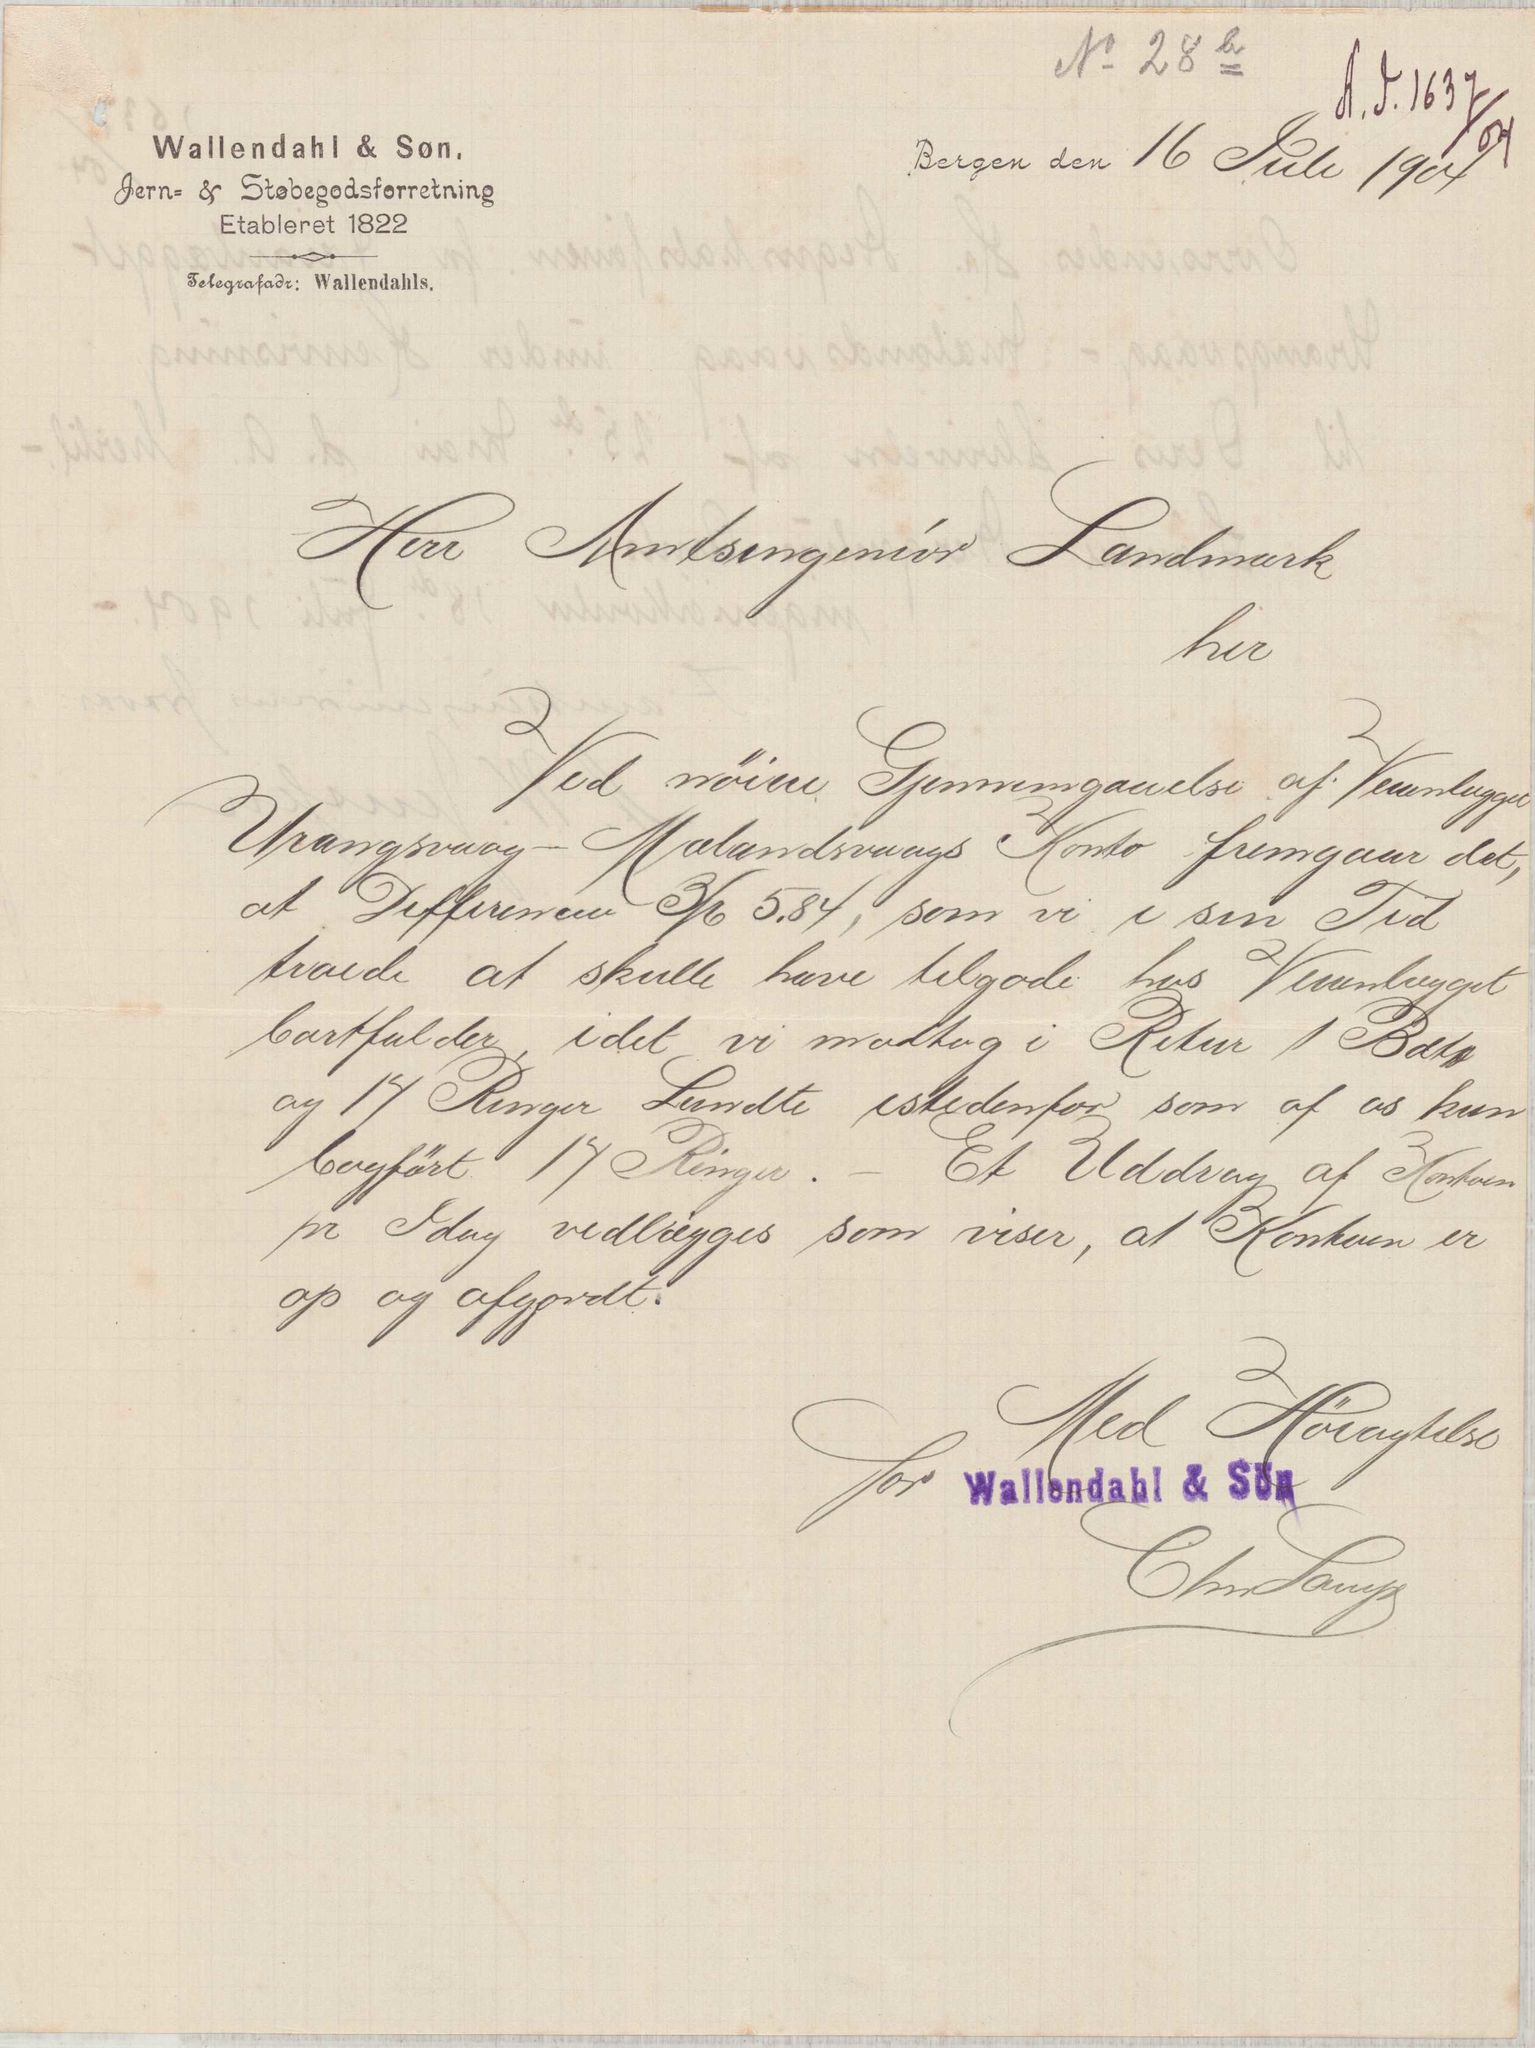 No 28 b
A.J. 1637/04
Wallendahl & Søn.
Jern- & Støbegodsforretning
Etableret 1822
Telegrafadr: Wallendahls.
Bergen den 16 Juli 1904
Herr Amtsingeniör Landmark
her
Ved nöiere Gjennemgaaelse af Veianlægget
Vrangsvaag - Mælandsvaags Konto fremgaar det,
at Differencen 5.84, som vi i sin Tid
troede at skulle have tilgode hos Veianlægget
bortfalder, idet vi modtog i Retur 1 Bdt
og 17 Ringer Lundte istedenfor som af os kun
bogfört 17 Ringer. - Et Uddrag af Kontoen
pr Idag vedlægges som viser, at Kontoen er
op og afgjordt.
Med Höiagtelse
for Wallendahl & Sön